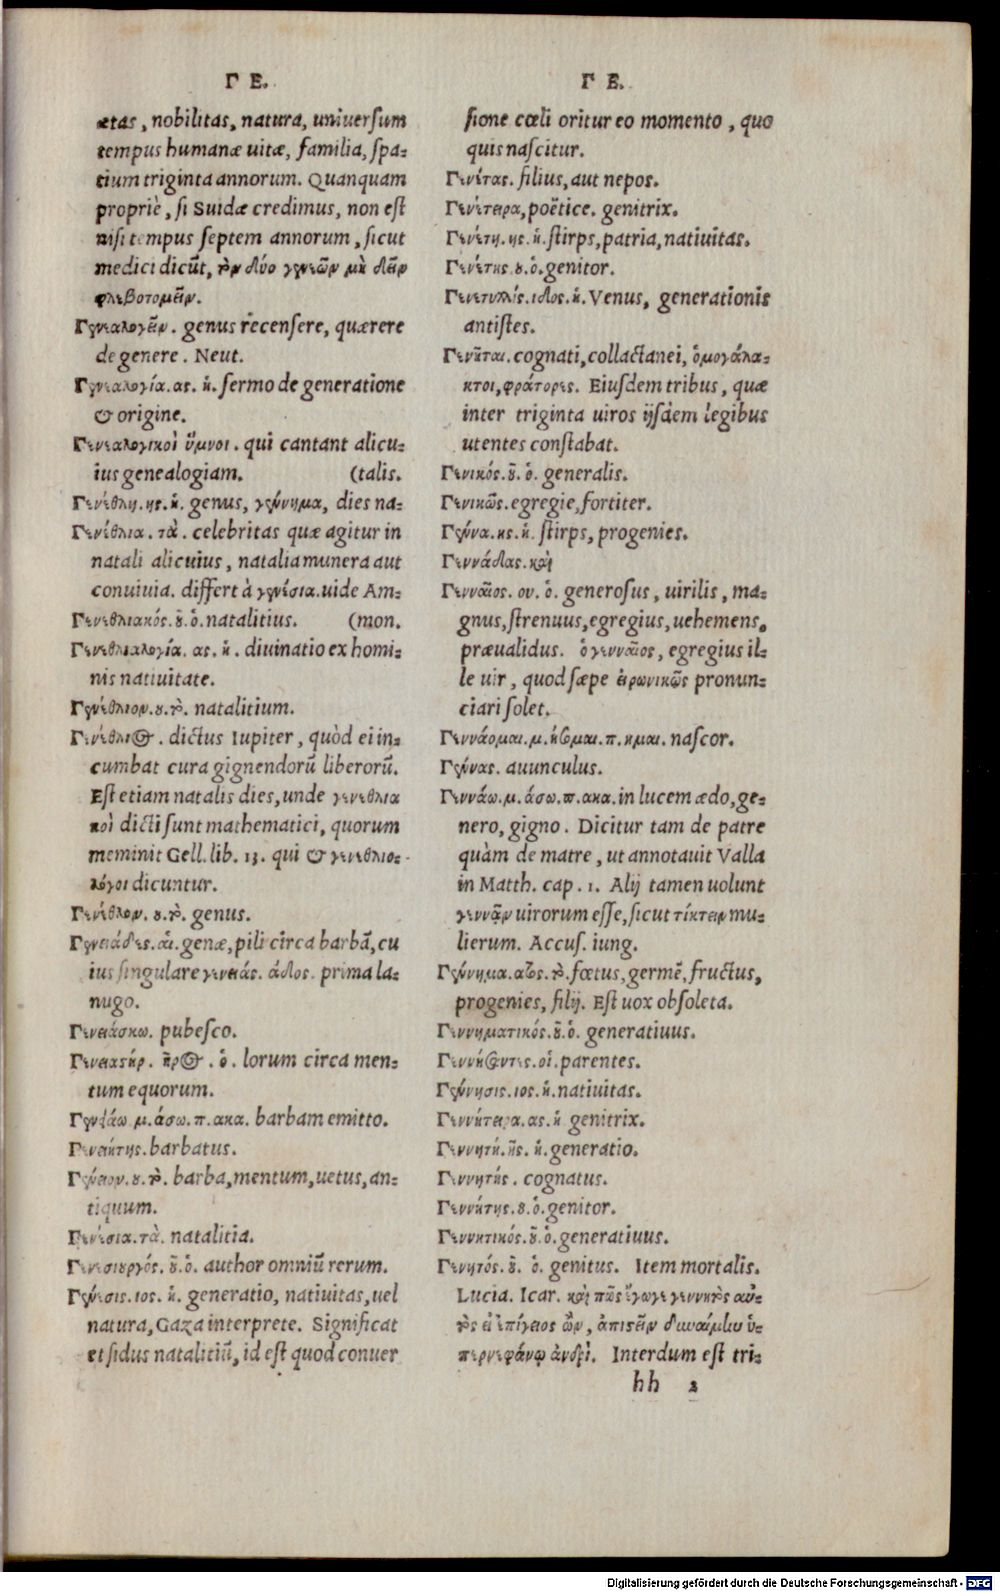 Γ Ε.
ætas, nobilitas, natura, uniuersum
tempus humanæ uitæ, familia, spa-
tium triginta annorum. Quanquam
propriè, si Suidæ credimus, non est
nisi tempus septem annorum, sicut
medici dicūt, τὸν δύο γενεῶν μὴ δεῖν
φλεβοτομεῖν.
Γενεαλογεῖν. genus recensere, quærere
de genere. Neut.
Γενεαλογία. ας. ἡ. sermo de generatione
& origine.
Γενεαλογικοὶ ὕμνοι. qui cantant alicu-
ius genealogiam. (talis.
Γενέθλη. ης. ἡ. genus, γέννημα, dies na-
Γενέθλια. τὰ. celebritas quæ agitur in
natali alicuius, natalia munera aut
conuiuia. differt à γενέσια. uide Am-
Γενεθλιακός. οῦ. ὁ. natalitius. (mon.
Γενεθλιαλογία. ας. ἡ. diuinatio ex homi-
nis natiuitate.
Γενέθλιον. ου. τὸ. natalitium.
Γενέθλιος. dictus Iupiter, quòd ei in-
cumbat cura gignendorū liberorū.
Est etiam natalis dies, unde γενεθλια
κοὶ dicti sunt mathematici, quorum
meminit Gell. lib. 13. qui & γενεθλιο-
λόγοι dicuntur.
Γένεθλον. ου. τὸ. genus.
Γενειάδες. αἱ. genæ, pili circa barbā, cu
ius singulare γενειάς. άδος. prima la-
nugo.
Γενειάσκω. pubesco.
Γενειαστήρ. ῆρος. ὁ. lorum circa men-
tum equorum.
Γενειάω. μ. άσω. π. ακα. barbam emitto.
Γενειήτης. barbatus.
Γένειον. ου. τὸ. barba, mentum, uetus, an-
tiquum.
Γενέσια. τὰ. natalitia.
Γενεσιουργός. οῦ. ὁ. author omniū rerum.
Γένεσις. ιος. ἡ. generatio, natiuitas, uel
natura, Gaza interprete. Significat
et sidus natalitiū, id est quod conuer
Γ Ε.
sione cœli oritur eo momento, quo
quis nascitur.
Γενέτας. filius, aut nepos.
Γενέτειρα, poëtice. genitrix.
Γενέτη. ης. ἡ. stirps, patria, natiuitas.
Γενέτης ου. ὁ. genitor.
Γενετυλλίς. ίδος. ἡ. Venus, generationis
antistes.
Γενῆται. cognati, collactanei, ὁμογάλα-
κτοι, φράτορες. Eiusdem tribus, quæ
inter triginta uiros ijsdem legibus
utentes constabat.
Γενικός. οῦ. ὁ. generalis.
Γενικῶς. egregie, fortiter.
Γέννα. ης. ἡ. stirps, progenies.
Γεννάδας. καὶ
Γενναῖος. ου. ὁ. generosus, uirilis, ma-
gnus, strenuus, egregius, uehemens,
præualidus. ὁ γενναῖος, egregius il-
le uir, quod sæpe εἰρωνικῶς pronun-
ciari solet.
Γεννάομαι. μ. ήσομαι. π. ημαι. nascor.
Γέννας. auunculus.
Γεννάω. μ. άσω. π. ακα. in lucem ædo, ge-
nero, gigno. Dicitur tam de patre
quàm de matre, ut annotauit Valla
in Matth. cap. 1. Alij tamen uolunt
γεννᾶν uirorum esse, sicut τίκτειν mu-
lierum. Accus. iung.
Γέννημα. ατος. τὸ. fœtus, germē, fructus,
progenies, filij. Est uox obsoleta.
Γεννηματικός. οῦ. ὁ. generatiuus.
Γεννήσαντες. οἱ. parentes.
Γέννησις. ιος. ἡ. natiuitas.
Γεννήτειρα. ας. ἡ. genitrix.
Γεννητή. ῆς. ἡ. generatio.
Γεννητής. cognatus.
Γεννήτης. ου. ὁ. genitor.
Γεννητικός. οῦ. ὁ. generatiuus.
Γεννητός. οῦ. ὁ. genitus. Item mortalis.
Lucia. Icar. καὶ πῶς ἔγωγε γεννητὸς αὐ-
τὸς ἐπίγειος ὢν, ἀπιστεῖν δυναίμην ὑ-
περνεφάνῳ ἀνδρί. Interdum est tri-
hh 2
Digitalisierung gefördert durch die Deutsche Forschungsgemeinschaft - DFG